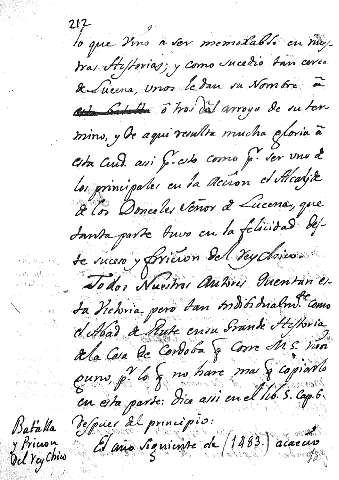 212
lo que vino a ser memorable en nues
tras Historias; y como sucedio tan cerca
de Lucena, unos le dan su Nombre â
esta Batalla ô tros dl arroyo de su ter
mino, y de aqui resulta mucha gloria â
esta Ciud asi pr. esto como pr. ser uno de
los principales en la Accion el Alcayde
de los Donceles Señor de Lucena, que
tanta parte tuvo en la felicidad des
te suceso y Pricion del rey Chico.
Todos Nuestros Autores Quentan es
ta Victoria, pero tan indibidualmte. como
el Abad de Rute en su Grande Historia
de la Casa de Cordoba q corre M.S. nin
guno, pr. lo q no hare mas q copiarlo
en esta parte: dice asi en el lib. 5. Cap. 6.
despues del principio:
Batalla
y Pricion
del rey Chico
El año siguiente de (1483.) acaecio